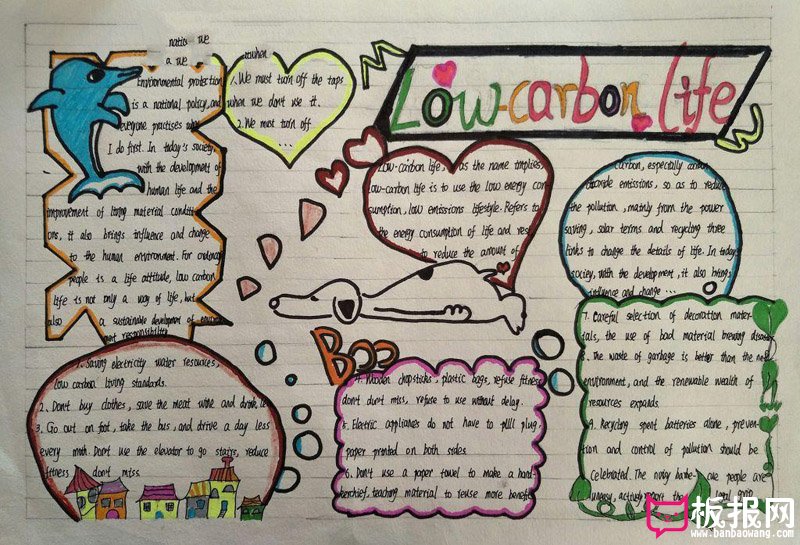 Low-carbon Life
natio we
a we
Environmental protection
is a national policy, and
everyone practises
I do first. In today's society
with the development of
human life and the
improvement of living material condit-
ions, it also brings influence and change
to the human environment. For
people is a life attitude, low carbon
life is not only a way of life, but
also a sustainable development of
responsibility
when
1. We must turn off the taps
when we don't use it.
2. We must turn off
...
Low-carbon life, as the name implies,
low-carbon life is to use the low energy con-
sumption, low emissions lifestyle. Refers to
the energy consumption of life and res
to reduce the amount of
carbon, especially carbon
dioxide emissions, so as to reduce
the pollution, mainly from the power
saving, solar terms and recycling three
links to change the details of life. In today
society, with the development, it also brings
influence and change ...
Boo
1. Saving electricity water resources,
low carbon living standards.
2. Don't buy clothes, save the meat wine and drink,
3. Go out on foot, take the bus, and drive a day less
every month. Don't use the elevator to go stairs, reduce
fitness don't miss.
4. Wooden chopsticks, plastic bags, refuse fitness
don't don't miss, refuse to use without delay.
5. Electric appliances do not have to pull plug,
paper printed on both sides.
6. Don't use a paper towel to make a hand-
kerchief, teaching material to reuse more benefit
7. Careful selection of decoration mater-
ials, the use of bad material brewing
8. The waste of garbage is better than the
environment, and the renewable wealth of
resources expands
9. Recycling spent batteries alone, preven-
tion and control of pollution should be
Celebrated. The noisy people are
the local
板报网
www.banbaowang.com